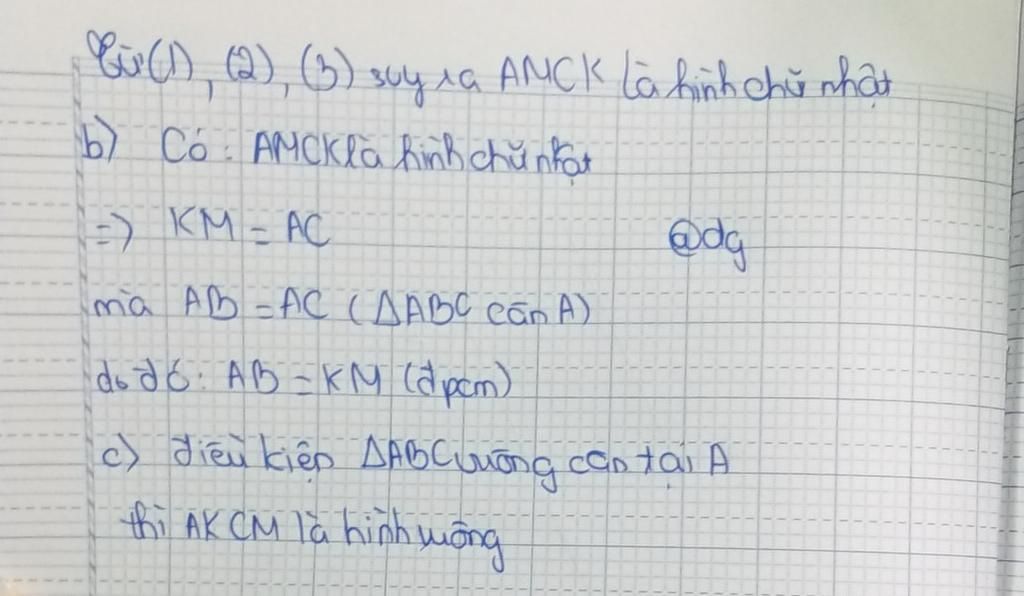 Từ (1), (2), (3) suy ra AMCK là hình chữ nhật
b) Có: AMCK là hình chữ nhật
=> KM = AC @dg
mà AB = AC (ΔABC cân A)
do đó: AB = KM (đpcm)
c) điều kiện ΔABC vuông cân tại A
thì AKCM là hình vuông